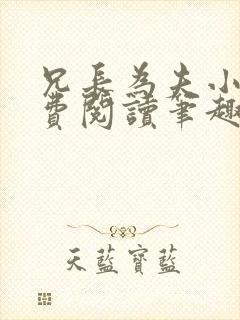 兄長為夫小
費閱讀筆趣
天藍寶藍